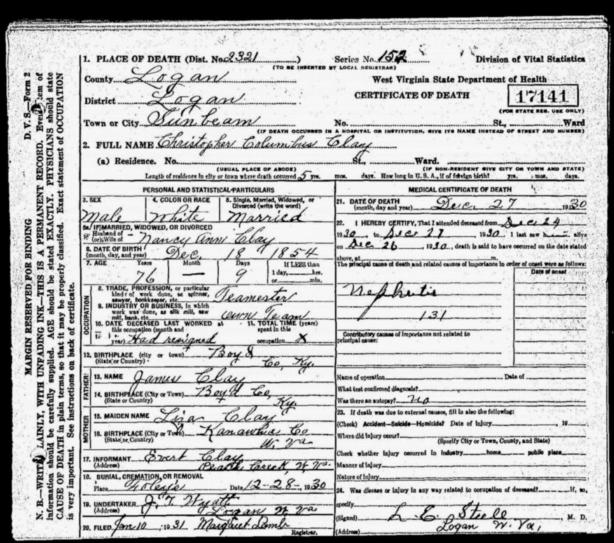 D. V. S.—Form 2
MARGIN RESERVED FOR BINDING
N. B.—WRITE PLAINLY, WITH UNFADING INK—THIS IS A PERMANENT RECORD. Every item of
information should be carefully supplied. AGE should be stated EXACTLY. PHYSICIANS should state
CAUSE OF DEATH in plain terms, so that it may be properly classified. Exact statement of OCCUPATION
is very important. See instructions on back of certificate.
1. PLACE OF DEATH (Dist. No. 2321) Series No. 152 Division of Vital Statistics
(TO BE INSERTED BY LOCAL REGISTRAR)
County Logan West Virginia State Department of Health
District Logan CERTIFICATE OF DEATH 17141
(FOR STATE REG. USE ONLY)
Town or City Sunbeam No. St., Ward
(IF DEATH OCCURRED IN A HOSPITAL OR INSTITUTION, GIVE ITS NAME INSTEAD OF STREET AND NUMBER)
2. FULL NAME Christopher Columbus Clay
(a) Residence. No. St., Ward.
(USUAL PLACE OF ABODE) (IF NON-RESIDENT GIVE CITY OR TOWN AND STATE)
Length of residence in city or town where death occurred 5 yrs. mos. days. How long in U. S., if of foreign birth? yrs. mos. days
PERSONAL AND STATISTICAL PARTICULARS
3. SEX 4. COLOR OR RACE 5. Single, Married, Widowed, or Divorced (write the word)
Male White Married
5a IF MARRIED, WIDOWED, OR DIVORCED
Husband of
(or) Wife of Nancy Ann Clay
6. DATE OF BIRTH (month, day, and year) Dec. 18 1854
7. AGE Years Months Days If LESS than 1 day, hrs. or min.
76 9
OCCUPATION
8. TRADE, PROFESSION, or particular kind of work done, as spinner, sawyer, bookkeeper, etc. Teamester
9. INDUSTRY OR BUSINESS, in which work was done, as silk mill, saw mill, bank, etc. own Team
10. DATE DECEASED LAST WORKED at this occupation (month and year) Had resigned
11. TOTAL TIME (years) spent in this occupation X
12. BIRTHPLACE (city or town) (State or Country) Boyd Co, Ky.
FATHER
13. NAME James Clay
14. BIRTHPLACE (City or Town) (State or Country) Boyd Co, Ky.
MOTHER
15. MAIDEN NAME Liza Clay
16. BIRTHPLACE (City or Town) (State or Country) Kanawha Co W. Va
17. INFORMANT Evert Clay
(Address) Creek, W. Va.
18. BURIAL, CREMATION, OR REMOVAL
Place Date 12-28-1930
19. UNDERTAKER J. T. Wyatt
(Address) Logan W. Va
20. FILED Jan 10, 1931 Margaret Lamb
Registrar.
MEDICAL CERTIFICATE OF DEATH
21. DATE OF DEATH (month, day and year) Dec. 27 1930
22. I HEREBY CERTIFY, That I attended deceased from Dec 24
1930, to Dec 27 1930 I last saw alive
on Dec 26 1930, death is said to have occurred on the date stated
above, at m.
The principal cause of death and related causes of importance in order of onset were as follows:
Date of onset
Nephritis
131
Contributory causes of importance not related to
principal cause:
Name of operation Date of
What test confirmed diagnosis?
Was there an autopsy? no
23. If death was due to external causes, fill in also the following:
(Check) Accident—Suicide—Homicide? Date of injury 19
Where did injury occur?
(Specify City or Town, County, and State)
Check whether injury occurred in industry home public place
Manner of injury
Nature of injury
24. Was disease or injury in any way related to occupation of deceased? If so,
specify
(Signed) L. E. Steele M. D.
Logan W. Va,